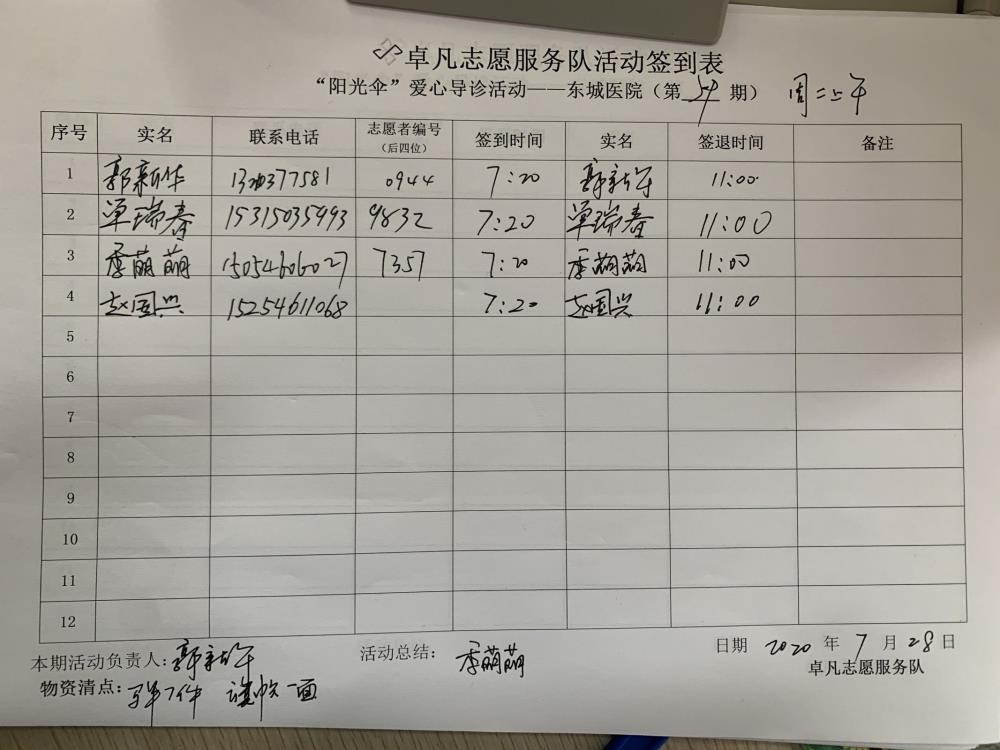 卓凡志愿服务队活动签到表
“阳光伞”爱心导诊活动——东城医院（第 期） 周二上午
序号 实名 联系电话 志愿者编号（后四位） 签到时间 实名 签退时间 备注
1 郭新华 0944 7:20 郭新华 11:00
2 单瑞春 15315035993 9832 7:20 单瑞春 11:00
3 季萌萌 15054606027 7357 7:20 季萌萌 11:00
4 赵国兴 15254611068 7:20 赵国兴 11:00
5
6
7
8
9
10
11
12
本期活动负责人: 郭新华 活动总结: 季萌萌 日期 2020 年 7 月 28 日
物资清点: 7件 旗帜一面 卓凡志愿服务队